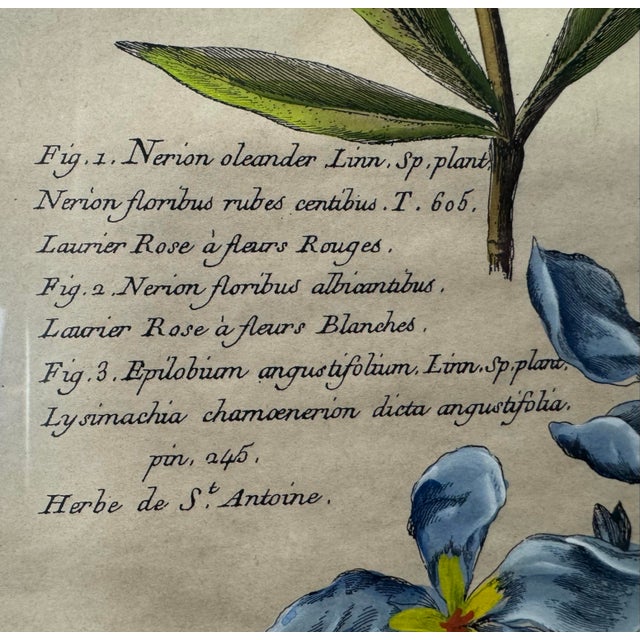 Fig. 1. Nerion oleander Linn. Sp. plant.
Nerion floribus rubes centibus. T. 605.
Laurier Rose à fleurs Rouges.
Fig. 2. Nerion floribus albicantibus.
Laurier Rose à fleurs Blanches.
Fig. 3. Epilobium angustifolium. Linn. Sp. plant.
Lysimachia chamœnerion dicta angustifolia.
pin. 245.
Herbe de S.t Antoine.